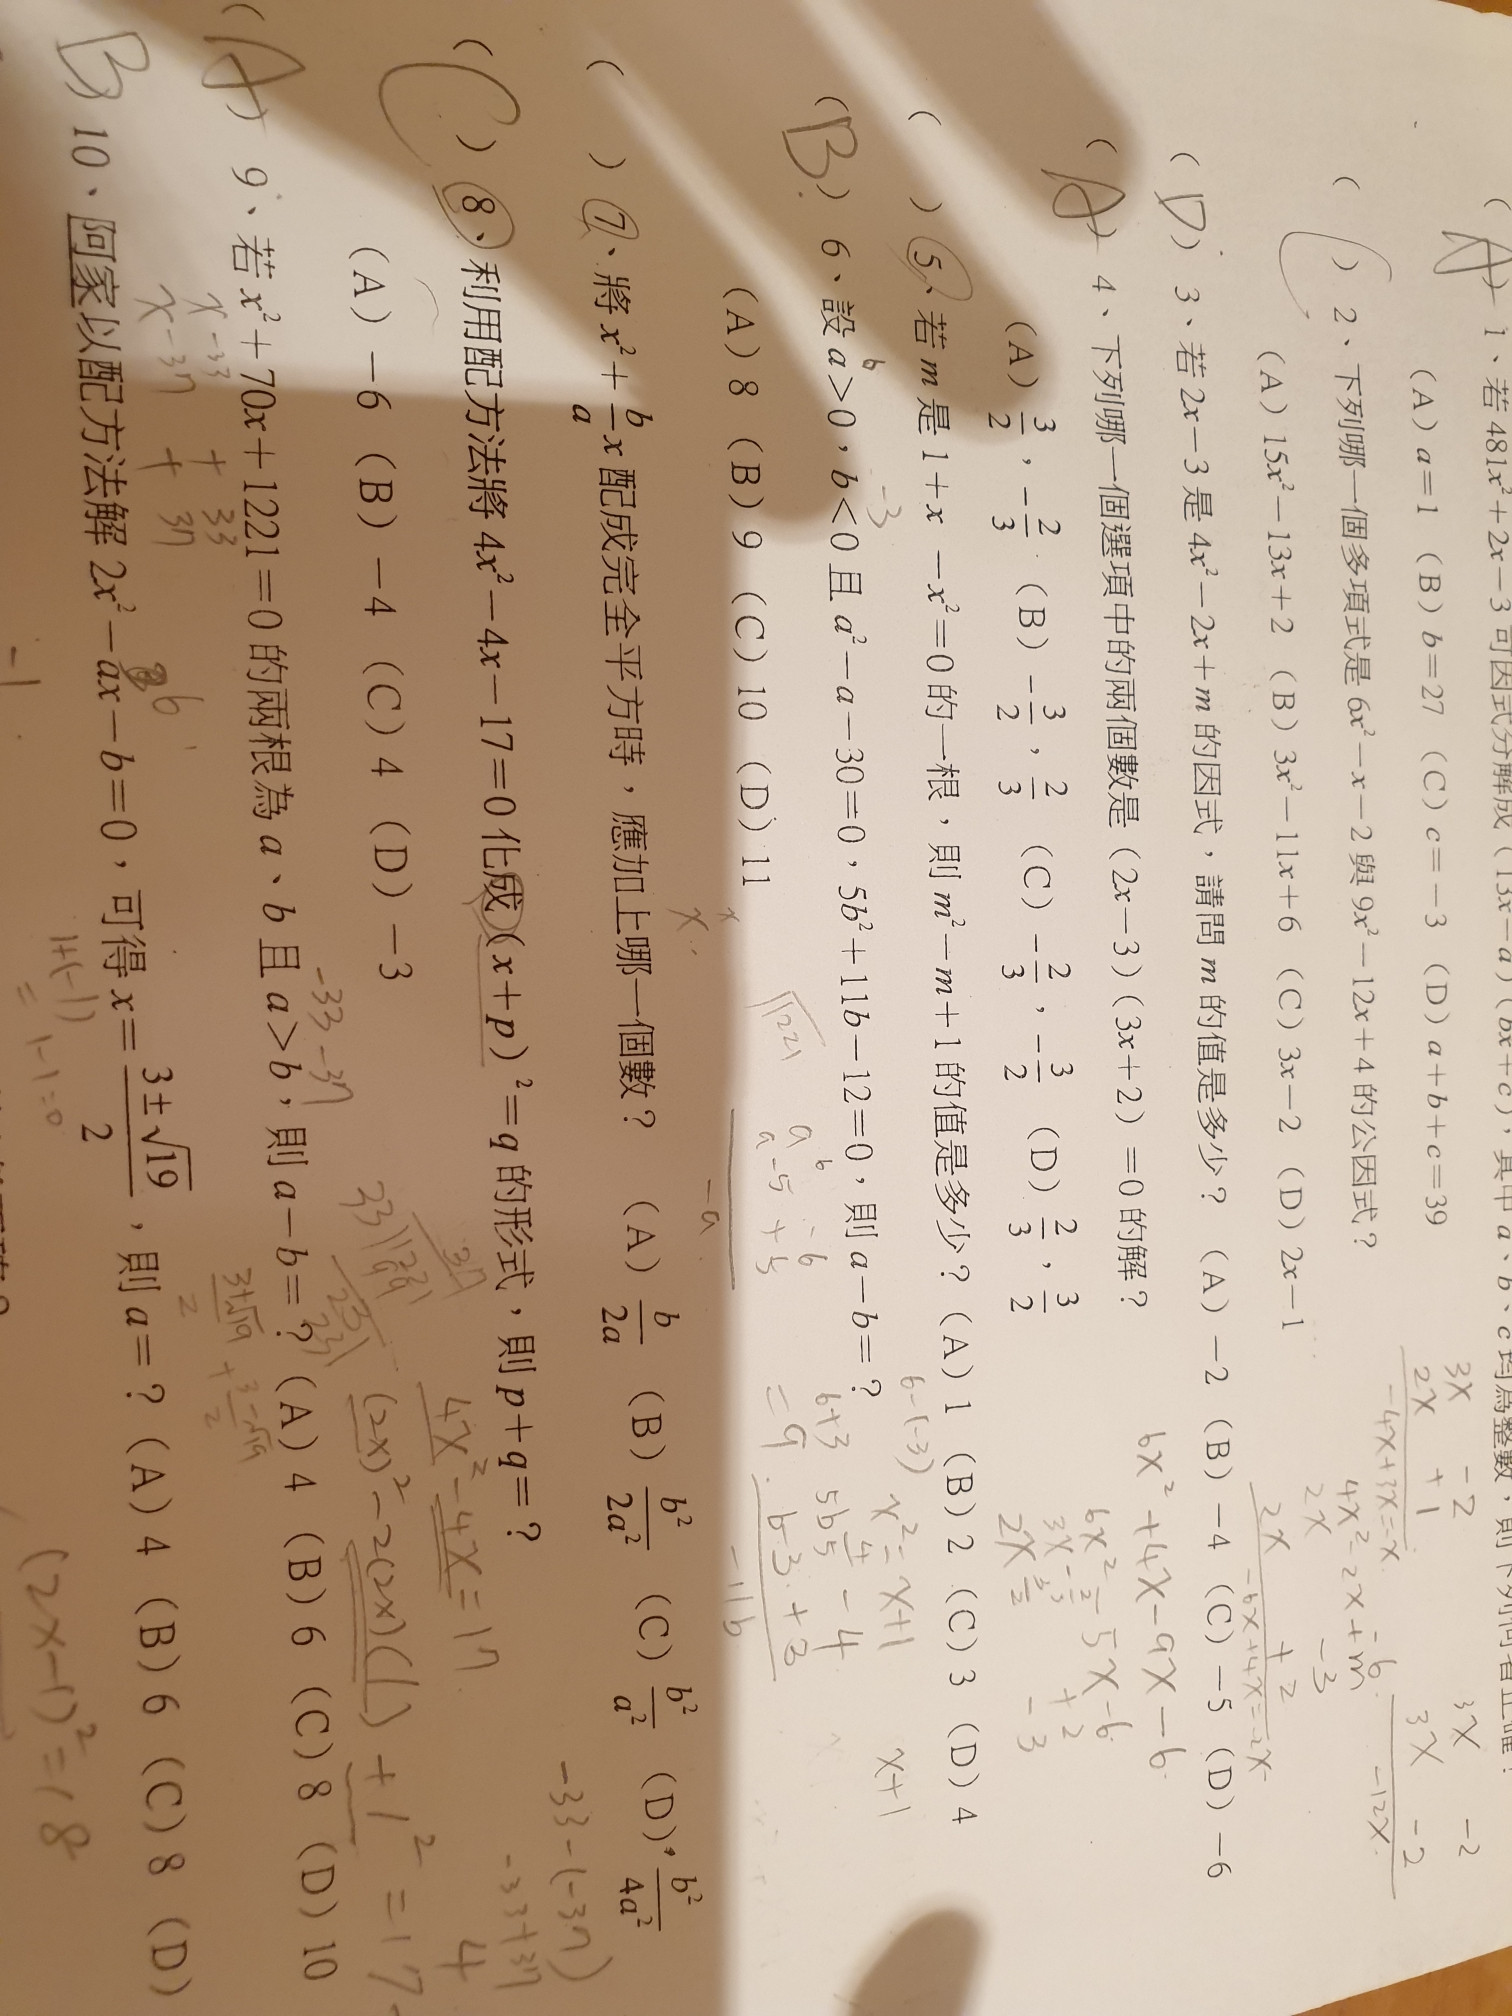 (A) 1、若 481x²+2x−3 可因式分解成 (13x−a)(bx+c)，其中 a、b、c 均為整數，則下列何者正確？
(A) a=1 (B) b=27 (C) c=−3 (D) a+b+c=39
(C) 2、下列哪一個多項式是 6x²−x−2 與 9x²−12x+4 的公因式？
(A) 15x²−13x+2 (B) 3x²−11x+6 (C) 3x−2 (D) 2x−1
(D) 3、若 2x−3 是 4x²−2x+m 的因式，請問 m 的值是多少？ (A) −2 (B) −4 (C) −5 (D) −6
(A) 4、下列哪一個選項中的兩個數是 (2x−3)(3x+2)=0 的解？
(A) 3/2，−2/3 (B) −3/2，2/3 (C) −2/3，−3/2 (D) 2/3，3/2
( ) 5、若 m 是 1+x−x²=0 的一根，則 m²−m+1 的值是多少？ (A) 1 (B) 2 (C) 3 (D) 4
(B) 6、設 a>0，b<0 且 a²−a−30=0，5b²+11b−12=0，則 a−b=？
(A) 8 (B) 9 (C) 10 (D) 11
( ) 7、將 x²+b/a x 配成完全平方時，應加上哪一個數？ (A) b/2a (B) b²/2a² (C) b²/a² (D) b²/4a²
(C) 8、利用配方法將 4x²−4x−17=0 化成 (x+p)²=q 的形式，則 p+q=？
(A) −6 (B) −4 (C) 4 (D) −3
(A) 9、若 x²+70x+1221=0 的兩根為 a、b 且 a>b，則 a−b=？ (A) 4 (B) 6 (C) 8 (D) 10
(B) 10、阿家以配方法解 2x²−ax−b=0，可得 x=3±√19/2，則 a=？ (A) 4 (B) 6 (C) 8 (D)
3x −2
2x +1
−4x+3x=−x
3x −2
3x −2
−12x
4x²−2x+m
−6
2x −3
2x +2
−6x+4x=−2x
6x²+4x−9x−6
6x²−5x−6
3x +2
2x −3
x²=x+1
x+1
b −3
6−(−3)
6+3
=9
5b −4
b +3
−11b
a −6
a +5
−a
√1221
4x²−4x=17
(2x)²−2(2x)(1)+1²=17
(2x−1)²=18
37
33 1221
99
231
231
−33 −37
−33−(−37)
−33+37
4
x −33 +33
x −37 +37
3+√19/2 + 3−√19/2
6
1+(−1)
=1−1=0
−1